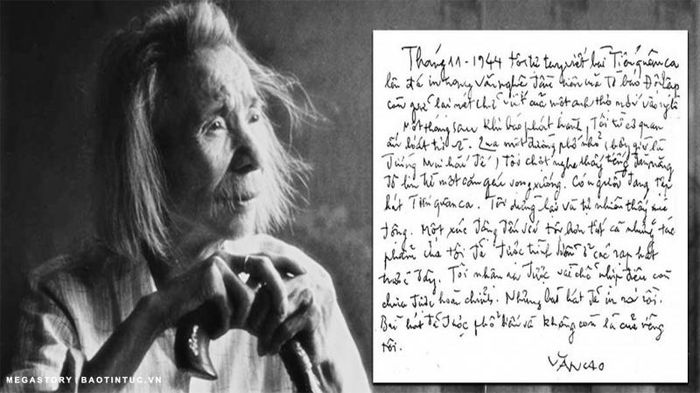 Tháng 11-1944 tôi tự tay viết bài Tiến quân ca
lên đá in trong văn nghệ đầu tiên mà tờ báo Độc lập
còn giữ lại nét chữ viết của một anh thợ mới vào nghề
Một tháng sau khi báo phát hành, tôi từ cơ quan
ấn loát trở về. Qua một đường phố nhỏ (bây giờ là
đường Mai hắc Đế) tôi chợt nghe thấy tiếng
từ một căn gác vọng xuống. Có người đang tập
hát Tiến quân ca. Tôi dừng lại và tự nhiên thấy xúc
động. Một xúc động đến với tôi hơn tất cả những tác
phẩm của tôi đã được trình diễn ở các rạp hát
trước đây. Tôi nhận ra được vài chỗ nhịp điệu còn
chưa được hoàn chỉnh. Những bài hát đã in ra rồi.
Bài hát đã được phổ biến và không còn là của riêng
tôi.
VĂN CAO
MEGASTORY | BAOTINTUC.VN